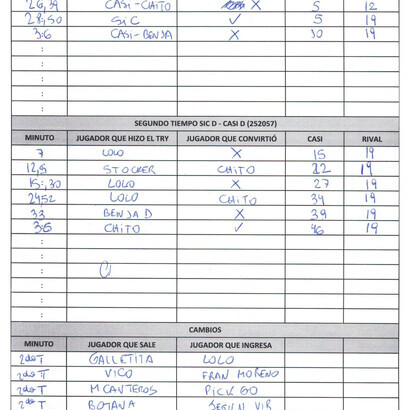 26,39 CASI-CHITO X 5 12
28,50 SIC ✓ 5 19
36 CASI-BENJA X 10 19
:
:
:
:
SEGUNDO TIEMPO SIC D - CASI D (252057)
MINUTO JUGADOR QUE HIZO EL TRY JUGADOR QUE CONVIRTIÓ CASI RIVAL
7 LOLO X 15 19
12,5 STOCKER CHITO 22 19
15:,30 LOLO X 27 19
2452 LOLO CHITO 34 19
33 BENJA D X 39 19
35 CHITO ✓ 46 19
:
:
:
:
:
:
CAMBIOS
MINUTO JUGADOR QUE SALE JUGADOR QUE INGRESA
2do T GALLETITA LOLO
2do T VICO FRAN MORENO
2do T M CANTEROS PICK GO
2do T BOTANA